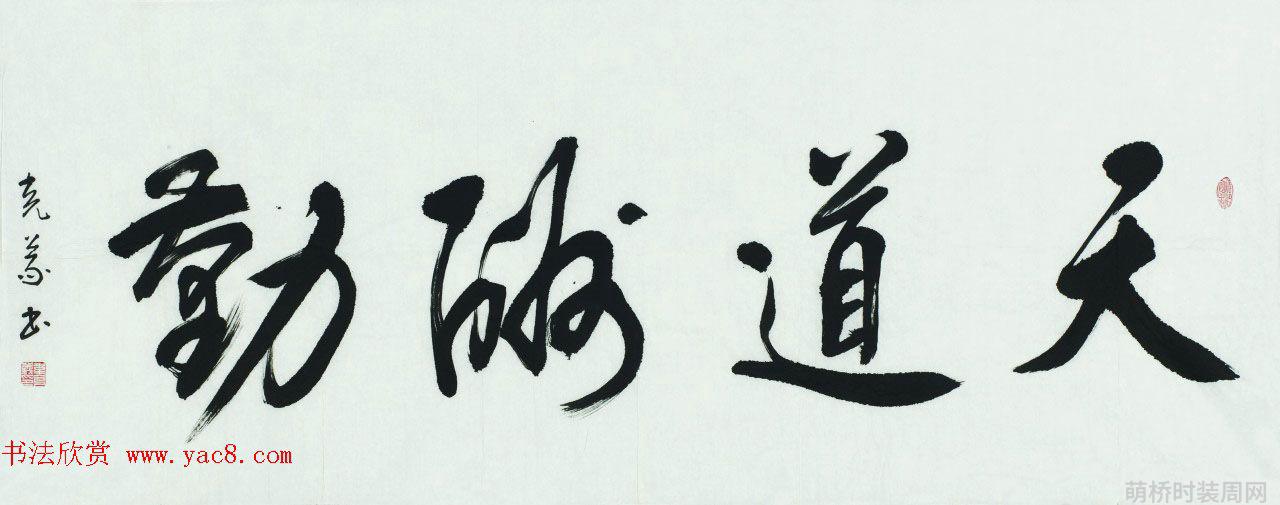 天道酬勤
克義书
书法欣赏 www.yac8.com
萌桥时装周网